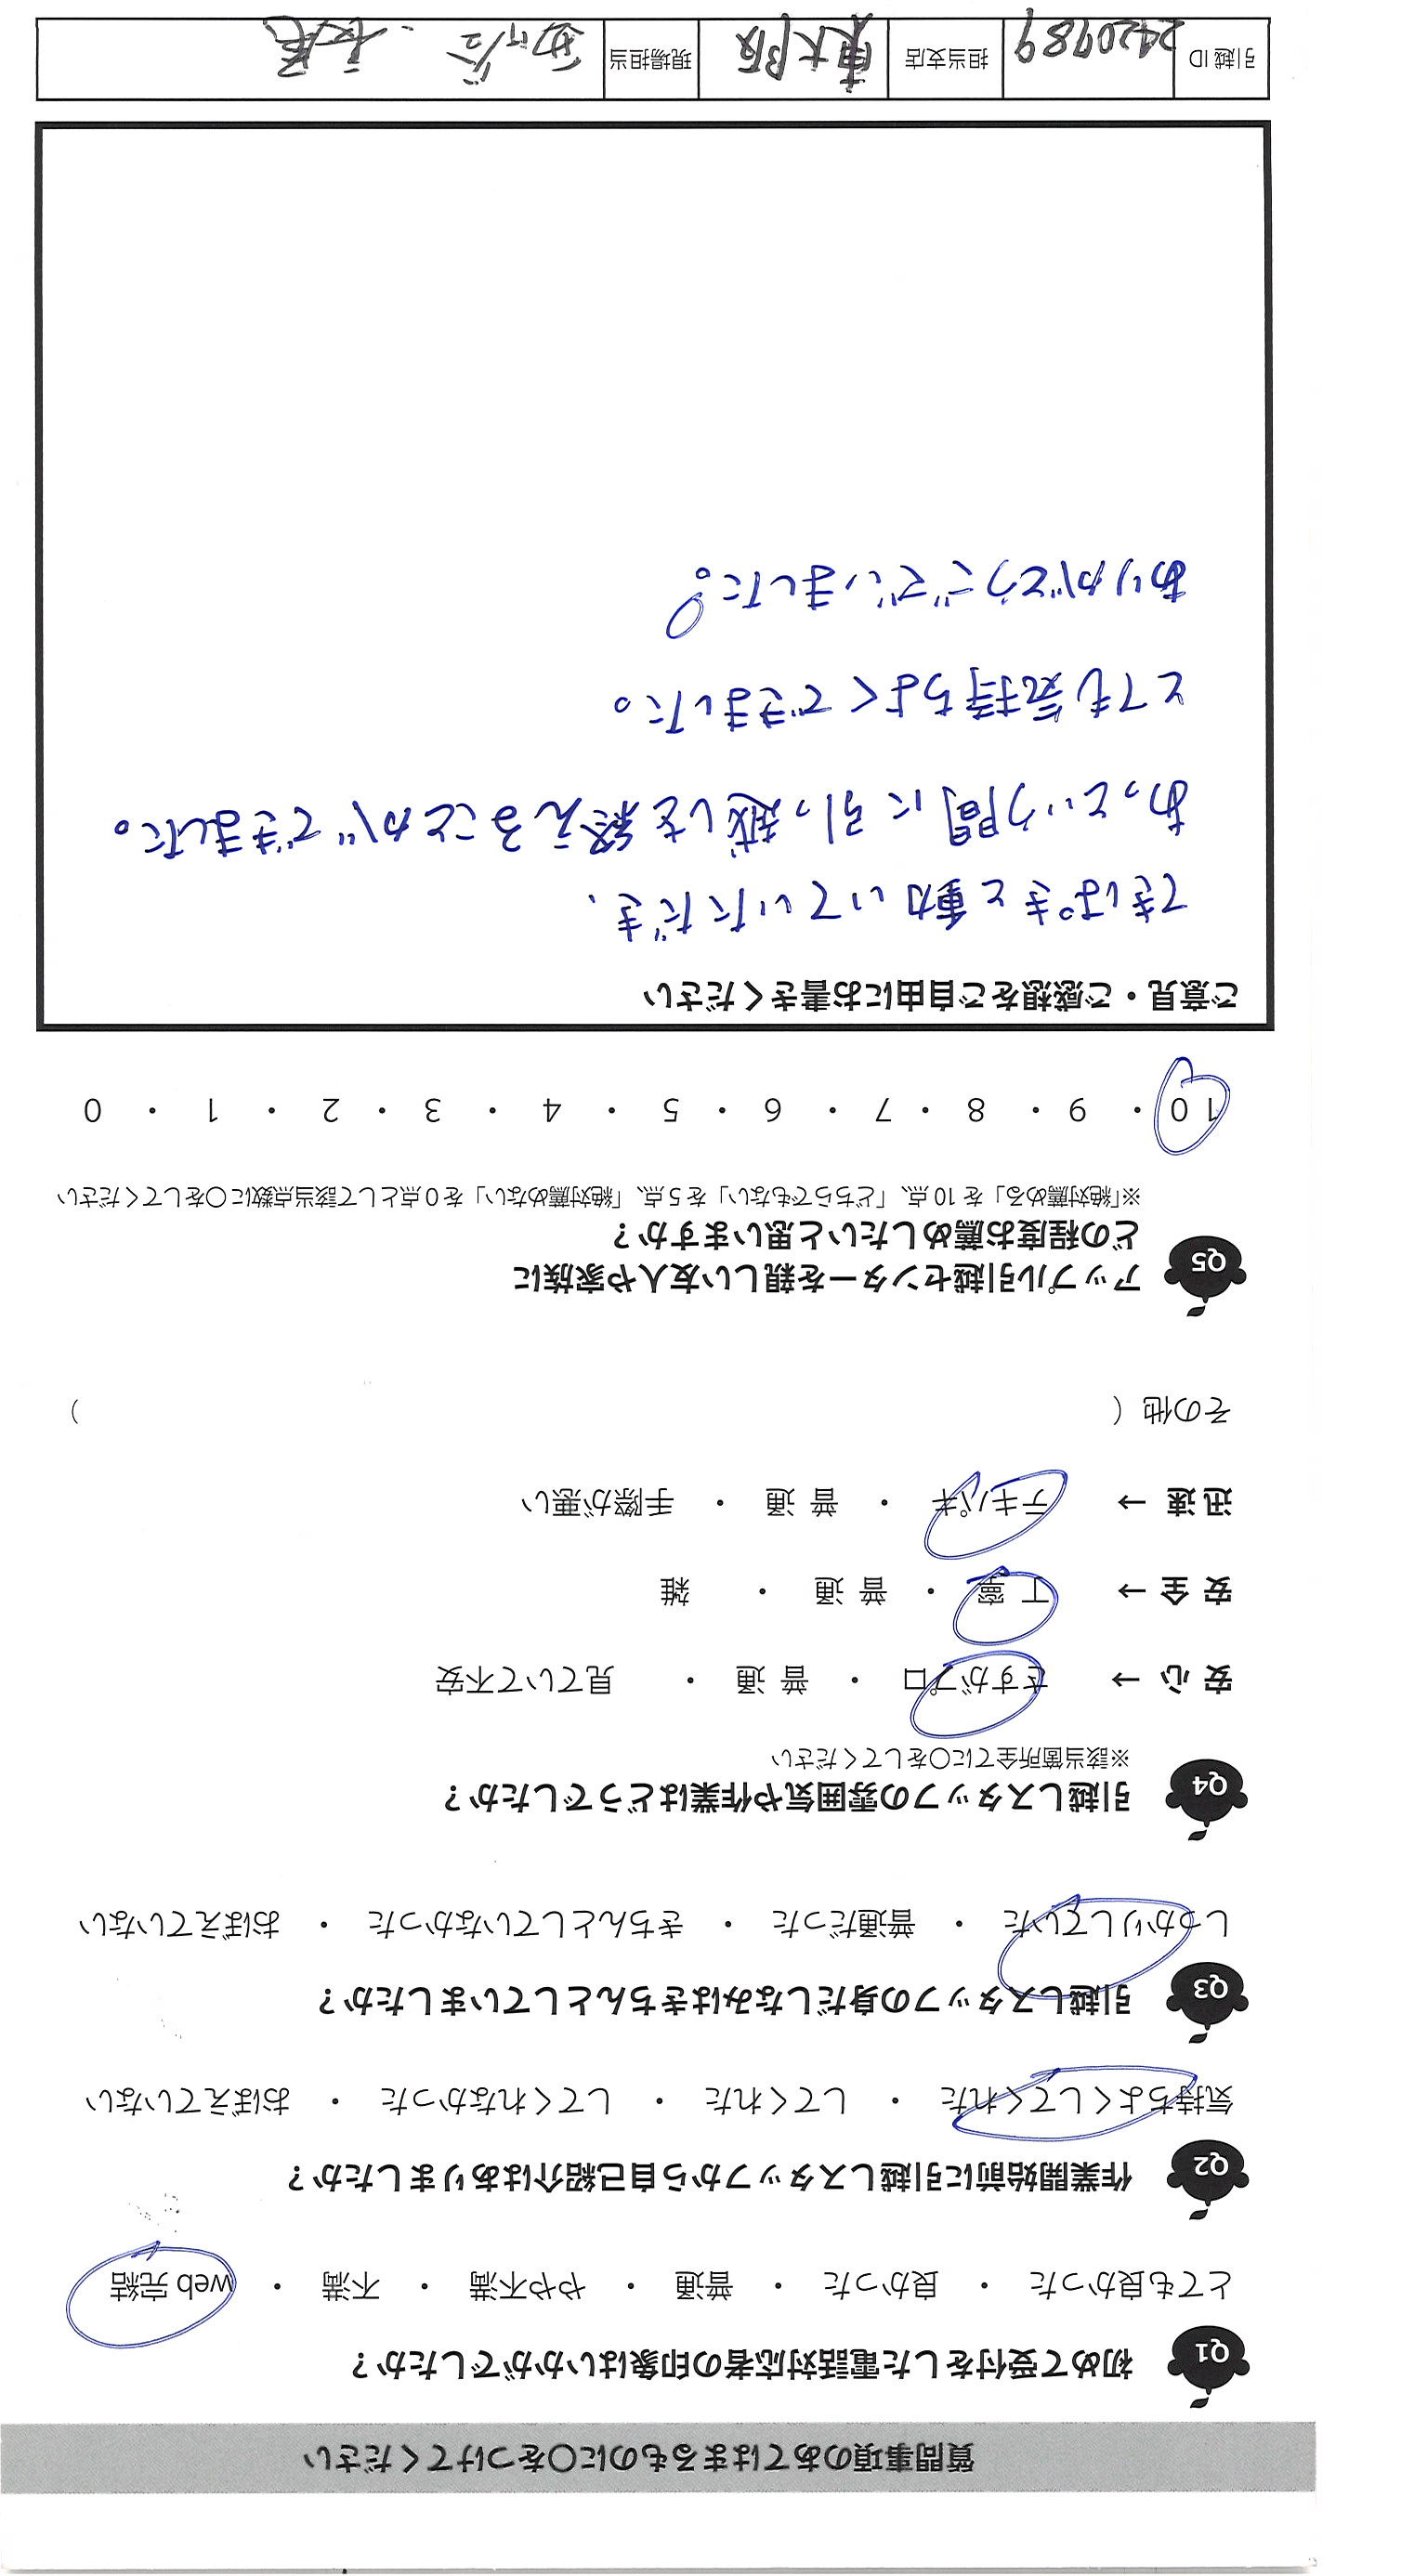 質問事項のあてはまるものに○をつけてください
Q1 初めて受付をした電話対応者の印象はいかがでしたか？
とても良かった ・ 良かった ・ 普通 ・ やや不満 ・ 不満 ・ web 完結
Q2 作業開始前に引越しスタッフから自己紹介はありましたか？
気持ちよくしてくれた ・ してくれた ・ してくれなかった ・ おぼえていない
Q3 引越しスタッフの身だしなみはきちんとしていましたか？
しっかりしていた ・ 普通だった ・ きちんとしていなかった ・ おぼえていない
Q4 引越しスタッフの雰囲気や作業はどうでしたか？
※該当箇所全てに○をしてください
安心 → さすがプロ ・ 普通 ・ 見ていて不安
安全 → 丁寧 ・ 普通 ・ 雑
迅速 → テキパキ ・ 普通 ・ 手際が悪い
その他（ ）
Q5 アップル引越センターを親しい友人や家族に
どの程度お薦めしたいと思いますか？
※「絶対薦める」を 10 点、「どちらでもない」を 5 点、「絶対薦めない」を 0 点として該当点数に○をしてください
10 ・ 9 ・ 8 ・ 7 ・ 6 ・ 5 ・ 4 ・ 3 ・ 2 ・ 1 ・ 0
ご意見・ご感想をご自由にお書きください
てきぱきと動いていただき、
あっという間に引っ越しを終えることができました。
とても気持ちよくできました。
ありがとうございました。
引越 ID 2420989 担当支店 東大阪 現場担当 長尾